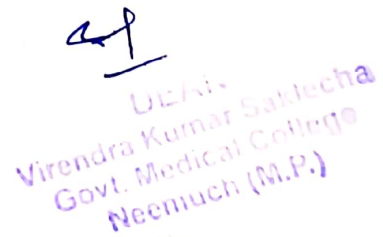 DEAN
Virendra Kumar Saklecha
Govt. Medical College
Neemuch (M.P.)